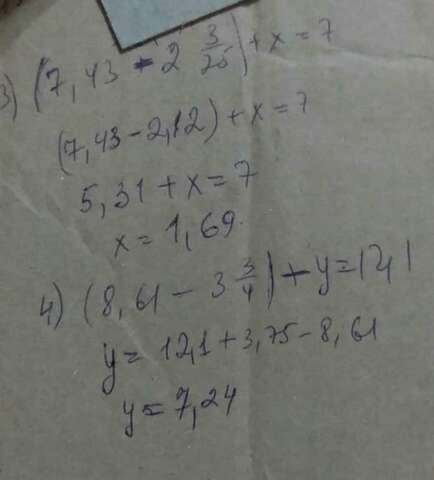 3) (7,43 - 2 3/25) + x = 7
(7,43 - 2,12) + x = 7
5,31 + x = 7
x = 1,69.
4) (8,61 - 3 3/4) + y = 12,1
y = 12,1 + 3,75 - 8,61
y = 7,24